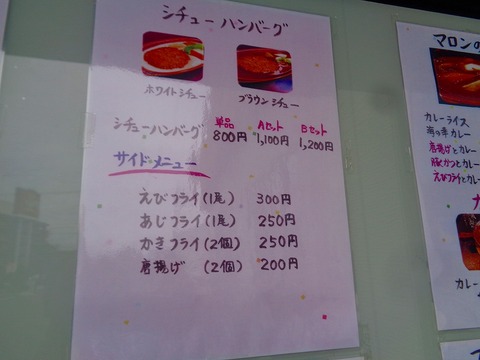 シチューハンバーグ
ホワイトシチュー
ブラウンシチュー
単品 Aセット Bセット
シチューハンバーグ 800円 1,100円 1,200円
サイドメニュー
えびフライ(1尾) 300円
あじフライ(1尾) 250円
かきフライ(2個) 250円
唐揚げ (2個) 200円
マロンの
カレーライス
海の幸カレー
唐揚げとカレー
豚かつとカレー
えびフライとカレー
カレー